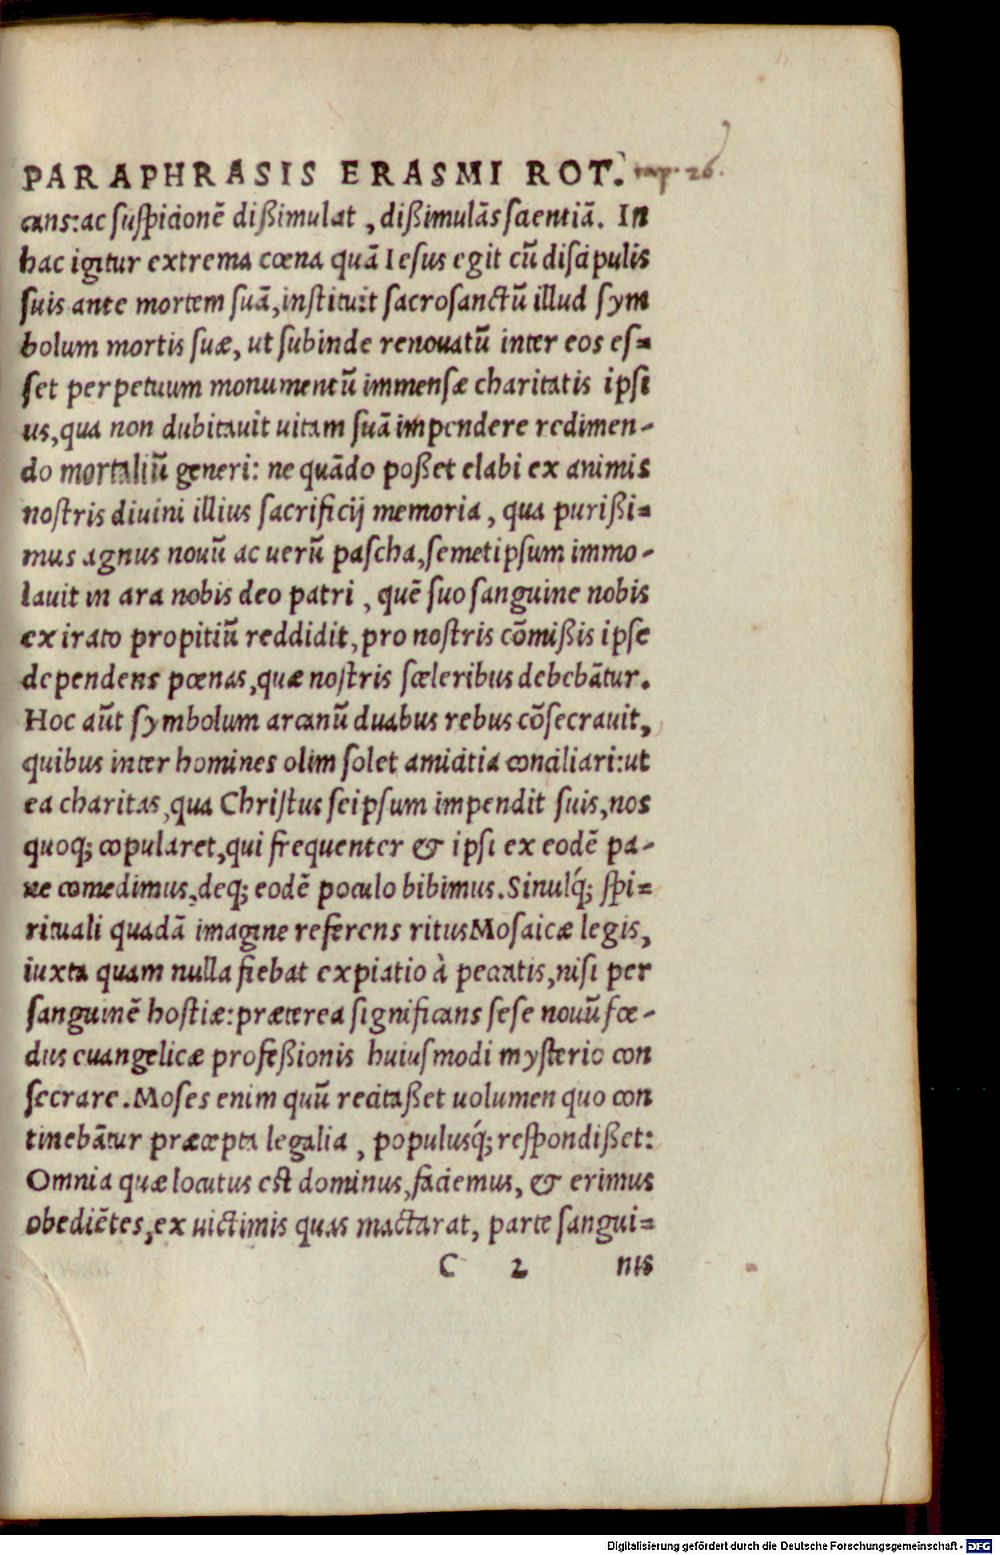 PARAPHRASIS ERASMI ROT. cap. 26.
cans: ac suspicionē dißimulat, dißimulās scientiā. In
hac igitur extrema cœna quā Iesus egit cū discipulis
suis ante mortem suā, instituit sacrosanctū illud sym
bolum mortis suæ, ut subinde renouatū inter eos es=
set perpetuum monumentū immensæ charitatis ipsi
us, qua non dubitauit uitam suā impendere redimen-
do mortaliū generi: ne quādo poßet elabi ex animis
nostris diuini illius sacrificij memoria, qua purißi=
mus agnus nouū ac uerū pascha, semetipsum immo-
lauit in ara nobis deo patri, quē suo sanguine nobis
ex irato propitiū reddidit, pro nostris cōmißis ipse
dependens pœnas, quæ nostris sceleribus debebātur.
Hoc aūt symbolum arcanū duabus rebus cōsecrauit,
quibus inter homines olim solet amicitia conciliari: ut
ea charitas, qua Christus seipsum impendit suis, nos
quoq; copularet, qui frequenter & ipsi ex eodē pa-
ne comedimus, deq; eodē poculo bibimus. Simulq́; spi=
rituali quadā imagine referens ritus Mosaicæ legis,
iuxta quam nulla fiebat expiatio à peccatis, nisi per
sanguinē hostiæ: præterea significans sese nouū fœ-
dus euangelicæ profeßionis huiusmodi mysterio con
secrare. Moses enim quū recitaßet uolumen quo con
tinebātur præcepta legalia, populusq́; respondißet:
Omnia quæ locutus est dominus, faciemus, & erimus
obediētes, ex uictimis quas mactarat, parte sangui=
C 2 nis
Digitalisierung gefördert durch die Deutsche Forschungsgemeinschaft - DFG